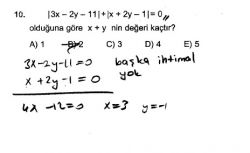 10. |3x - 2y - 11|+|x + 2y - 1|= 0
olduğuna göre x + y nin değeri kaçtır?
A) 1 B) 2 C) 3 D) 4 E) 5
3x-2y-11=0 başka ihtimal
x+2y-1=0 yok
4x -12=0 x=3 y=-1